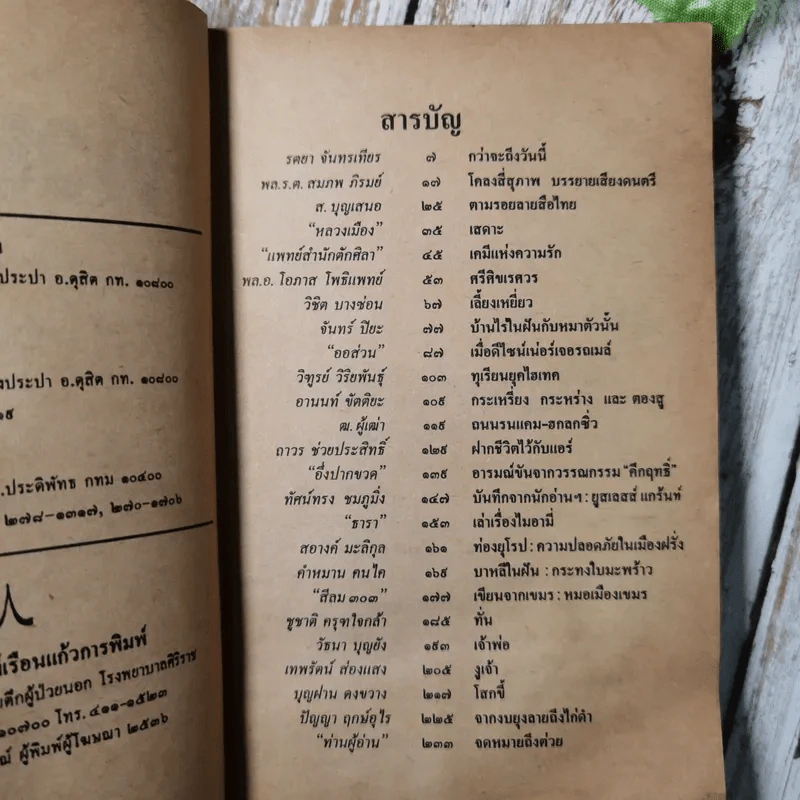 ประปา อ.ดุสิต กท. ๑๐๘๐๐
งประปา อ.ดุสิต กท. ๑๐๘๐๐
๑๙
.ประดิพัทธ กทม ๑๐๔๐๐
๒๗๘-๑๓๑๗, ๒๗๐-๑๗๐๖
เรือนแก้วการพิมพ์
ตึกผู้ป่วยนอก โรงพยาบาลศิริราช
๑๐๗๐๐ โทร. ๔๑๑-๑๕๒๓
ณ์ ผู้พิมพ์ผู้โฆษณา ๒๕๓๖
สารบัญ
รตยา จันทรเทียร ๗ กว่าจะถึงวันนี้
พล.ร.ต. สมภพ ภิรมย์ ๑๗ โคลงสี่สุภาพ บรรยายเสียงดนตรี
ส. บุญเสนอ ๒๕ ตามรอยลายสือไทย
“หลวงเมือง” ๓๕ เสดาะ
“แพทย์สำนักตักศิลา” ๔๕ เคมีแห่งความรัก
พล.อ. โอภาส โพธิแพทย์ ๕๓ ศรีศิขเรศวร
วิชิต บางซ่อน ๖๗ เลี้ยงเหยี่ยว
จันทร์ ปิยะ ๗๗ บ้านไร่ในฝันกับหมาตัวนั้น
“ออส่วน” ๘๗ เมื่อดีไซน์เน่อร์เจอรถเมล์
วิฑูรย์ วิริยพันธุ์ ๑๐๓ ทุเรียนยุคไฮเทค
อานนท์ ขัตติยะ ๑๐๙ กระเหรี่ยง กระหร่าง และ ตองสู
ฒ. ผู้เฒ่า ๑๑๙ ถนนรนแคม-ฮกลกซิ่ว
ถาวร ช่วยประสิทธิ์ ๑๒๙ ฝากชีวิตไว้กับแอร์
“อึ่งปากขวด” ๑๓๙ อารมณ์ขันจากวรรณกรรม “คึกฤทธิ์”
ทัศน์ทรง ชมภูมิ่ง ๑๔๗ บันทึกจากนักอ่านฯ : ยูสเลสส์ แกร้นท์
“ธารา” ๑๕๓ เล่าเรื่องไมอามี่
สอางค์ มะลิกุล ๑๖๑ ท่องยุโรป : ความปลอดภัยในเมืองฝรั่ง
คำหมาน คนไค ๑๖๙ บาหลีในฝัน : กระทงใบมะพร้าว
“สีลม ๓๐๓” ๑๗๗ เขียนจากเขมร : หมอเมืองเขมร
ชูชาติ ครุฑใจกล้า ๑๘๕ ทั่น
วัธนา บุญยัง ๑๙๓ เจ้าพ่อ
เทพรัตน์ ส่องแสง ๒๐๕ งูเจ้า
บุญฝาน ดงขวาง ๒๑๗ โสกขี้
ปัญญา ฤกษ์อุไร ๒๒๕ จากงบยุงลายถึงไก่ดำ
“ท่านผู้อ่าน” ๒๓๓ จดหมายถึงต่วย